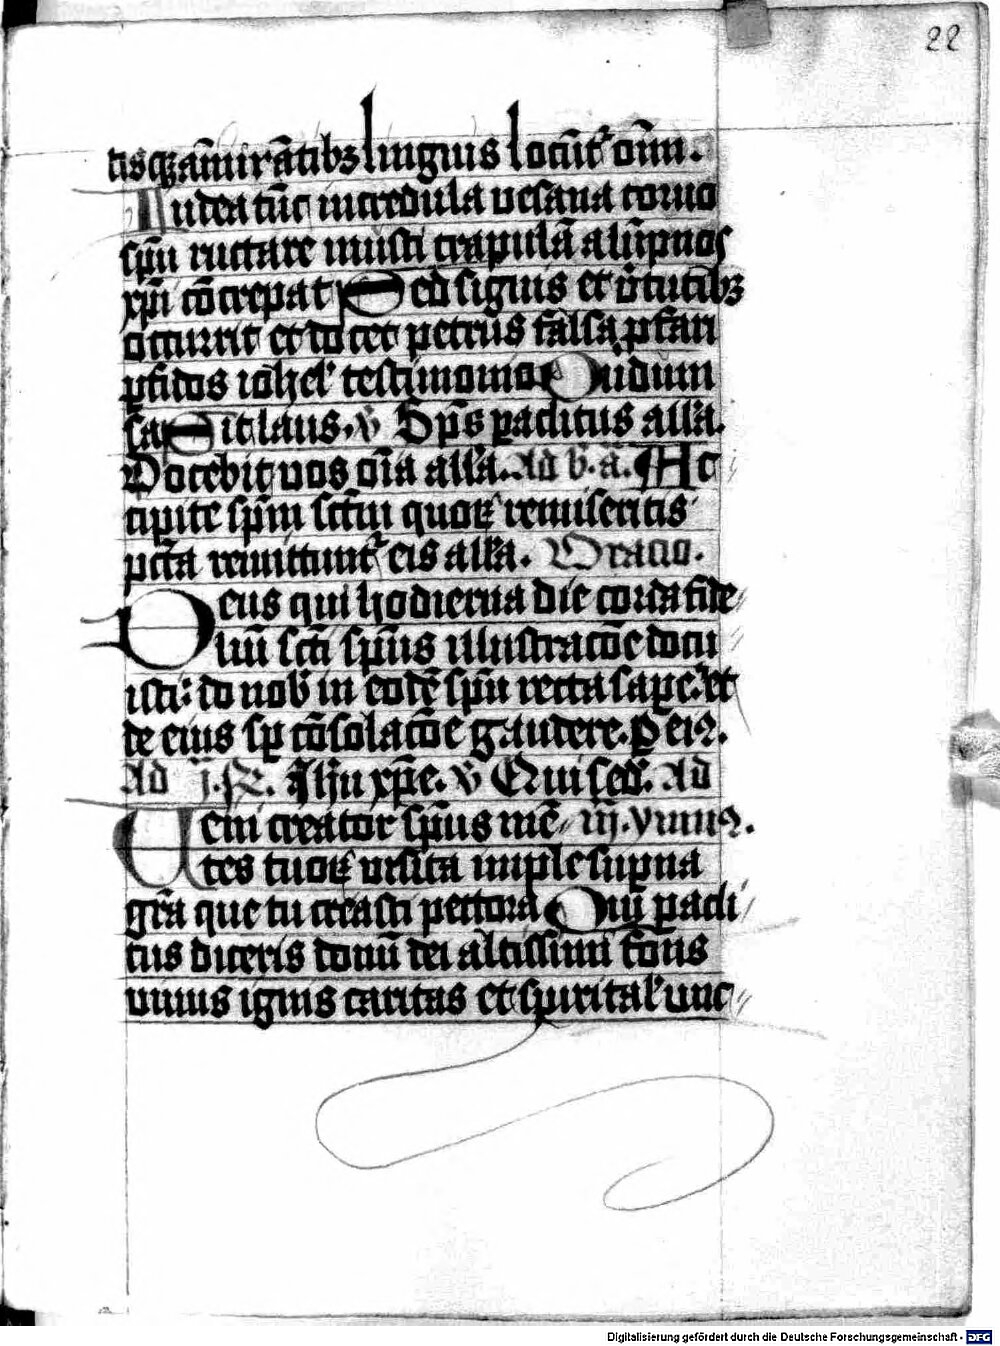 22
tis qz am̄irātibz linguis locūt' oīm .
Iudea tūc incredula vesana toruo
spū ructare musti crapulā alūpnos
xp̄i cōcrepat Sed signis et v̄tutibz
occurrit et docet petrus falsa ꝓfari
ꝑfidos iohel' testimonio Dudum
sa Sit laus . v̄ Sp̄s paclitus all'a .
Docebit vos oīa all'a . Ad b . a . Ac
cipite sp̄m sc̄tm quoꝝ remiseritis
pcc̄a remittunt' eis all'a . Oracio .
Deus qui hodierna die corda fide
liū sc̄ti sp̄us illustracōe docu
isti : do nob' in eodē sp̄u recta sapē et
de eius sp̄ cōsolacōe gaudere . P ei9 .
Ad j . ℞ . Ihū xp̄e . v̄ Qui sed' . Ad
Ueni creator sp̄us mē iij . ymn9 .
tes tuoꝝ visita imple suꝑna
gr̄a que tu creasti pectora Qui pacli
tus diceris donū dei altissimi fons
viuus ignis caritas et spirital' unc
Digitalisierung gefördert durch die Deutsche Forschungsgemeinschaft - DFG